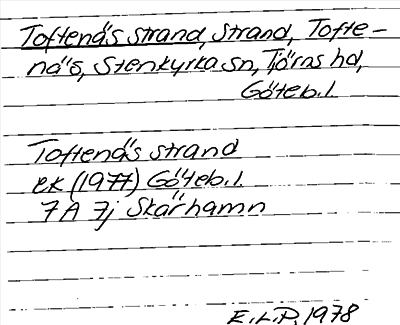 Toftenäs strand, strand, Tofte-
näs, Stenkyrka sn, Tjörns hd,
Göteb. l.
Toftenäs strand
ek (1977) Göteb. l.
7A 7j Skärhamn
E.L.P. 1978